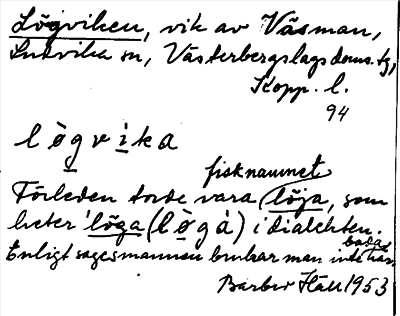 Lögviken, vik av Väsman,
Ludvika sn, Västerbergslags doms.tg,
Kopp. l.
94
lògvika
fisknamnet
Förleden torde vara löja, som
heter 'löga (lògà) i dialekten.
bada
Enligt sagesmannen brukar man inte här.
Barbro Häll 1953